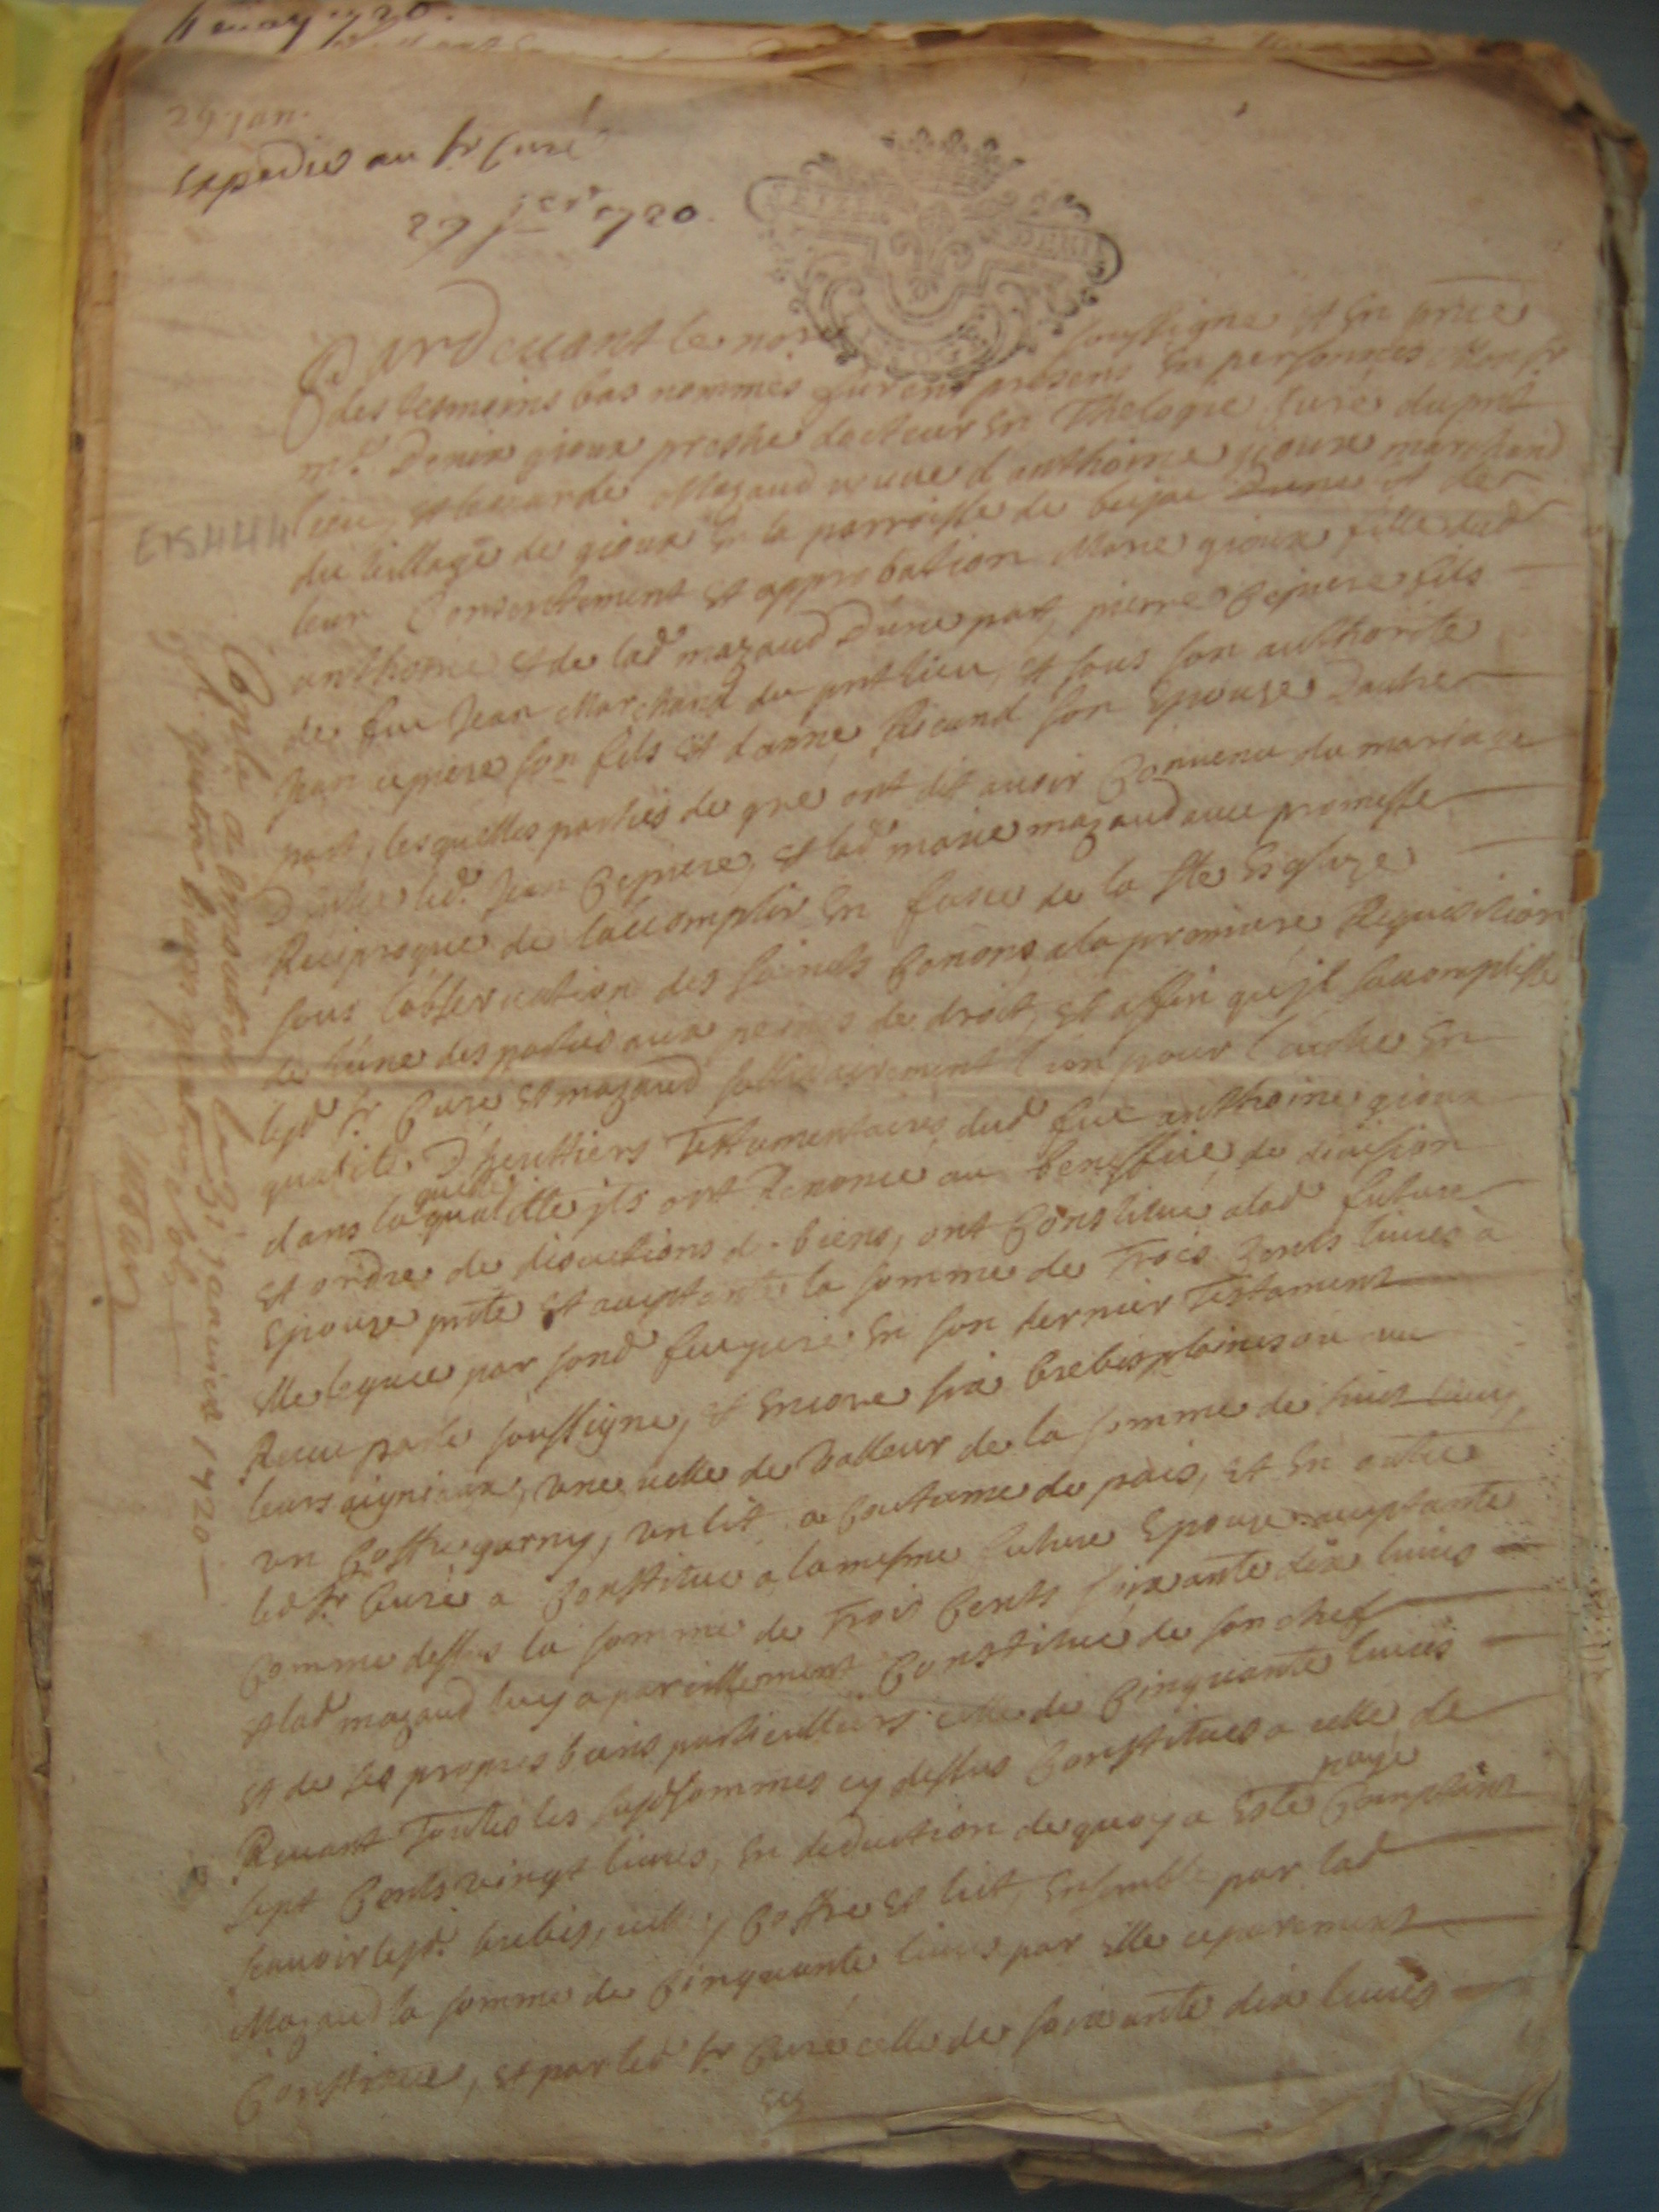 29 jan.
Expedié au sr Curé
29 jer 1720.
E15444
Pardevant le nore soussigne et en pnce
des tesmoins bas nommes furent presens en personnes Monsr
mr. Denix gioux prestre docteur en Theologie Curé du pnt
lieu, et leonarde Mazaud veuve d'anthoine gioux marchand
du village de gioux en la parroisse de bujac et de
leur Consentement et approbation Marie gioux fille dud
anthoine et de lad mazaud d'une part, pierre Cepiere fils
de feu Jean Marchand du pnt lieu, et sous son authorite
Jean cepiere son fils et danne son Epouze dautre
part, lesquelles parties de gre ont dit avoir Convenu du mariage
dentre led. Jean Cepiere, et lad marie mazaud avec promesse
Reciproque de laccomplir en face de la ste Esglize
sous l'observation des saincts Canons, a la premiere Requisition
de l'une des parties aux peines de droit, et affin qu'jl saccomplisse
lesd sr Curé et mazaud sollidairement l'un pour l'autre en
qualité d'herittiers Testamentaires dud feu anthoine gioux
dans laquelle qualitte jls ont Renoncé au beneffice de division
et ordre de discutions de biens, ont Constitué a lad future
Epouze pnte et acceptante la somme de Trois Cents livres à
elle leguée par sond feu pere en son dernier Testament
Receu par le soussigne, et encore six brebis plaines ou avec
leurs aigneaux, une velle de valleur de la somme de huit livres,
un Coffre garny, un lit a Coutume de païs, et en outre
led sr Curé a Constitue a la mesme future Epouze acceptante
comme dessus la somme de Trois Cents soixante dix livres
et lad mazaud luy a pareillement Constitué de son chef
et de ses propres biens particulliers celle de Cinquante livres
Revenant Toutes les susd sommes cy dessus Constituees a celle de
sept Cents vingt livres, en deduction de quoy a esté payé Comptant
scavoir lesd. brebis, velle, Coffre et lict, ensemble par lad
Mazaud la somme de Cinquante livres par elle ceparement
Constituée, et par led sr Curé celle de soixante dix livres
Conle a le 31 janvier 1720
quatre livres quatre sols